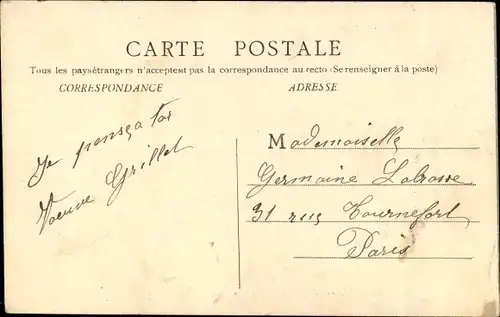 CARTE POSTALE
Tous les paysétrangers n'acceptent pas la correspondance au recto (Se renseigner à la poste)
CORRESPONDANCE
ADRESSE
Je pense à toi
Veuve Grillet
Mademoiselle
Germaine Labrosse
31 rue Tournefort
Paris